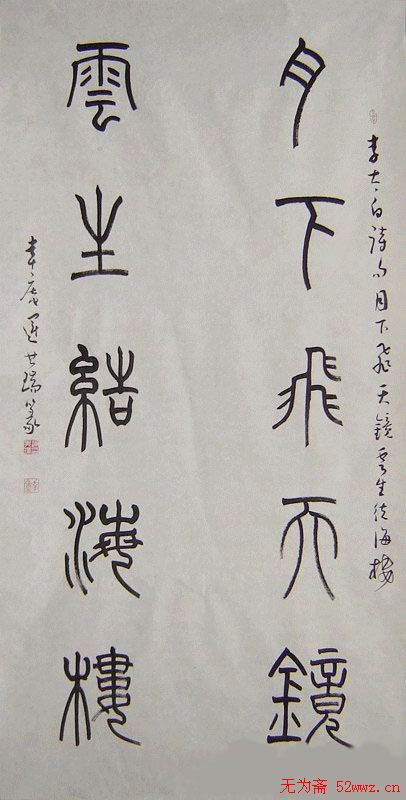 李太白詩句月下飛天鏡雲生结海楼
月下飛天鏡
雲生結海樓
无为斋 52wwz.cn